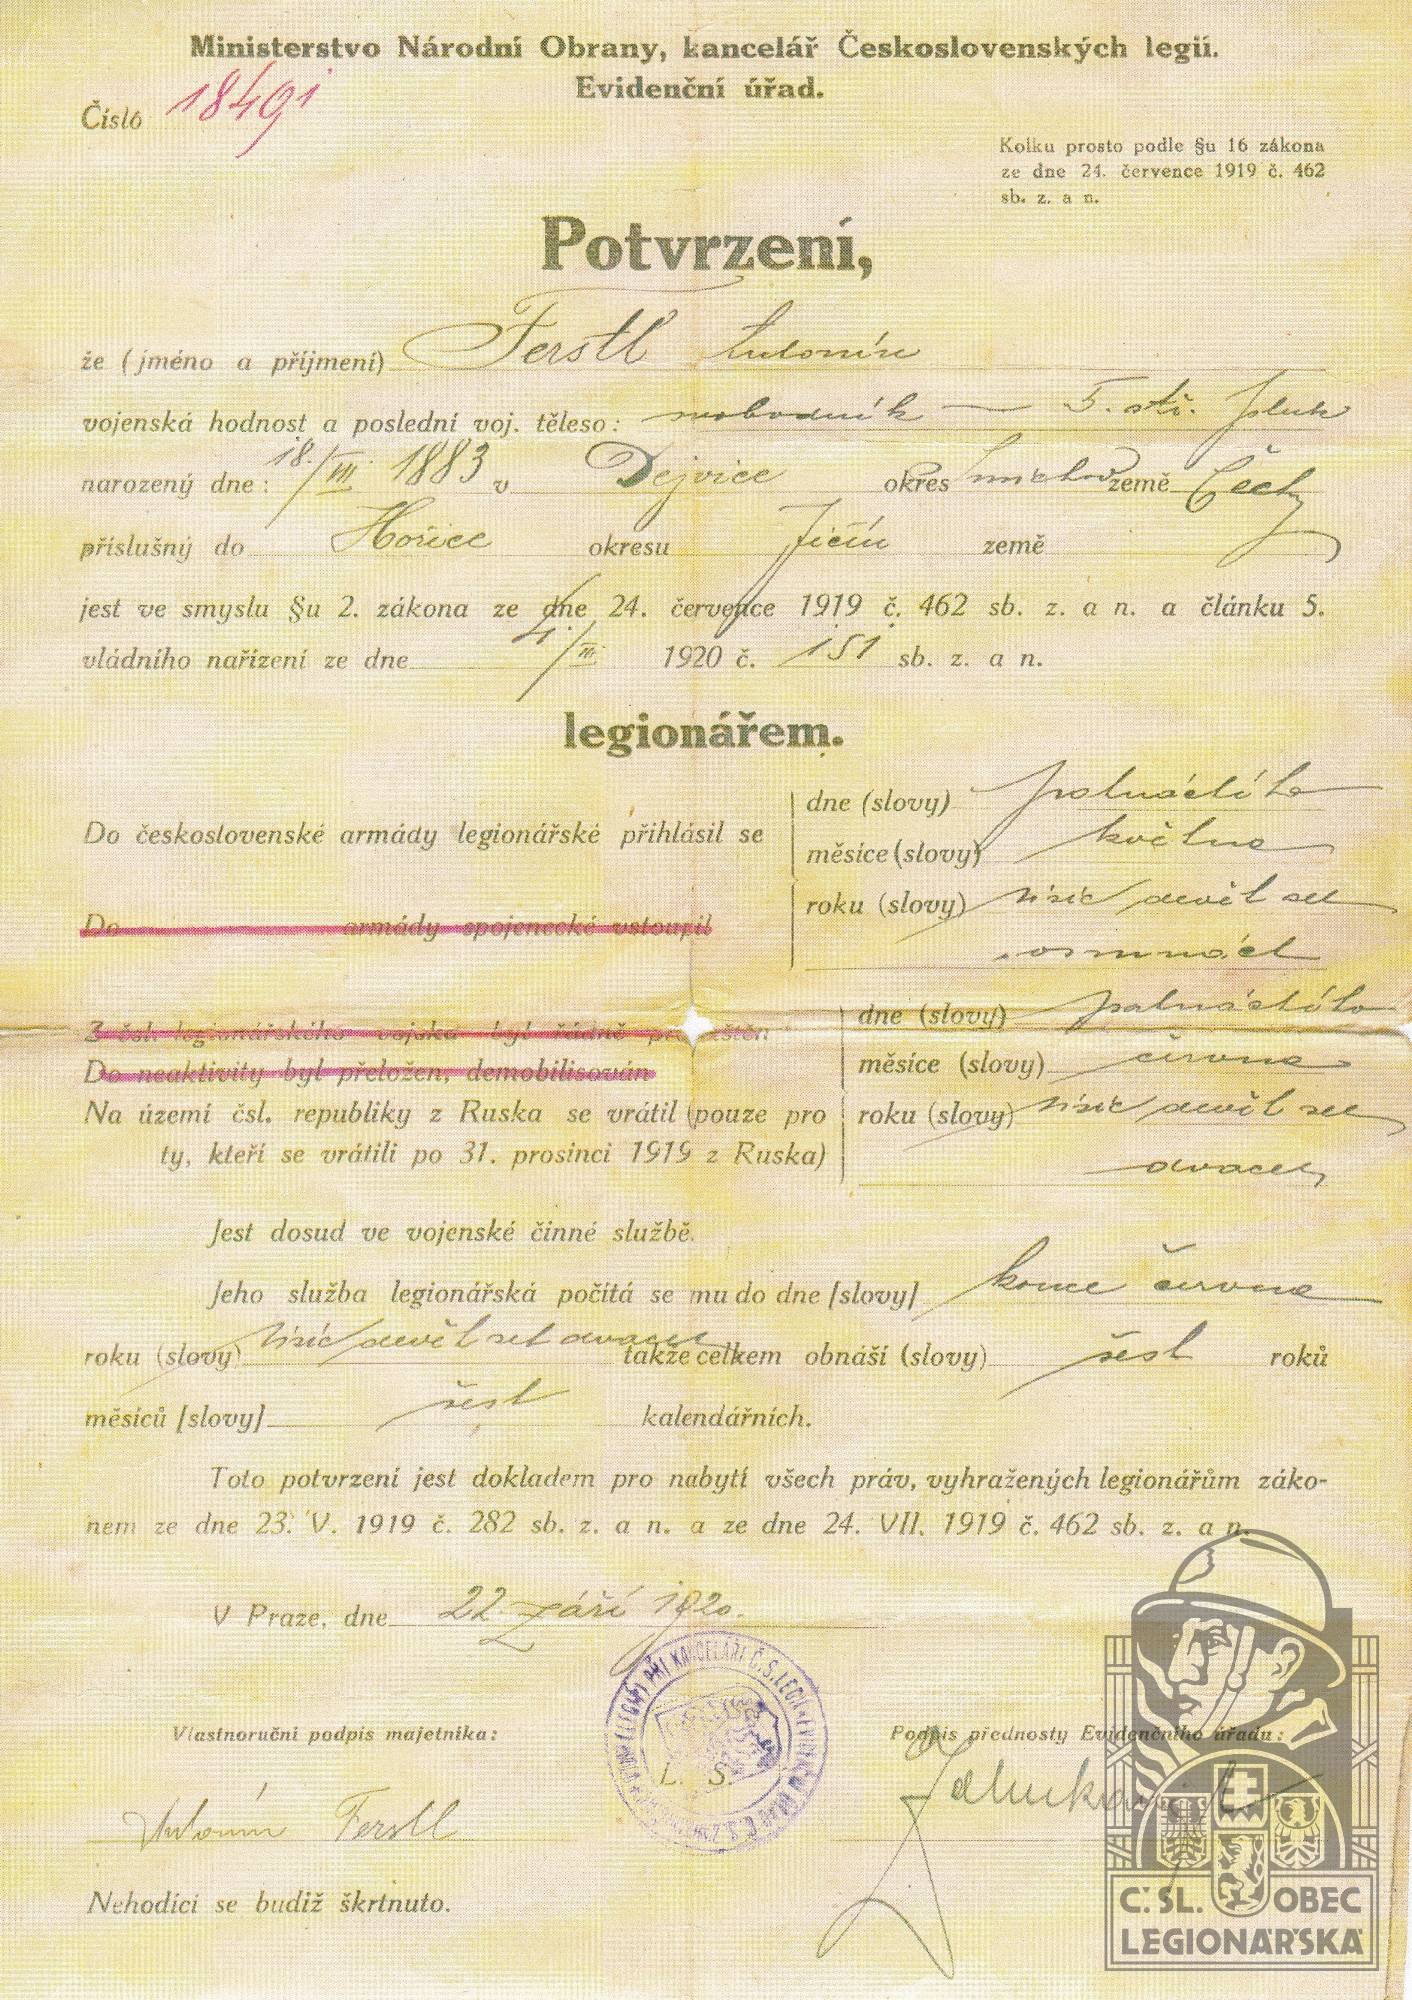 Ministerstvo Národní Obrany, kancelář Československých legií.
Evidenční úřad.
Číslo 18491
Kolku prosto podle §u 16 zákona
ze dne 24. července 1919 č. 462
sb. z. a n.
Potvrzení,
že (jméno a příjmení) Ferstl Antonín
vojenská hodnost a poslední voj. těleso: svobodník — 5. stř. pluk
narozený dne: 18./III. 1883 v Dejvice okres Smíchov země Čechy
příslušný do Hořice okresu Jičín země
jest ve smyslu §u 2. zákona ze dne 24. července 1919 č. 462 sb. z. a n. a článku 5.
vládního nařízení ze dne 4./III. 1920 č. 151 sb. z. a n.
legionářem.
Do československé armády legionářské přihlásil se
dne (slovy) patnáctého
měsíce (slovy) května
roku (slovy) tisíc devět set
osmnáct
Do armády spojenecké vstoupil
Z čsl. legionářského vojska byl řádně propuštěn
Do neaktivity byl přeložen, demobilisován
Na území čsl. republiky z Ruska se vrátil (pouze pro
ty, kteří se vrátili po 31. prosinci 1919 z Ruska)
dne (slovy) patnáctého
měsíce (slovy) června
roku (slovy) tisíc devět set
dvacet
Jest dosud ve vojenské činné službě.
Jeho služba legionářská počítá se mu do dne [slovy] konce června
roku (slovy) tisíc devět set dvacet takže celkem obnáší (slovy) šest roků
měsíců [slovy] šest kalendářních.
Toto potvrzení jest dokladem pro nabytí všech práv, vyhražených legionářům záko-
nem ze dne 23. V. 1919 č. 282 sb. z. a n. a ze dne 24. VII. 1919 č. 462 sb. z. a n.
V Praze, dne 22. září 1920.
Vlastnoruční podpis majetníka:
Podpis přednosty Evidenčního úřadu:
L. S.
Antonín Ferstl
Nehodící se budiž škrtnuto.
Č. SL. OBEC
LEGIONÁŘSKÁ